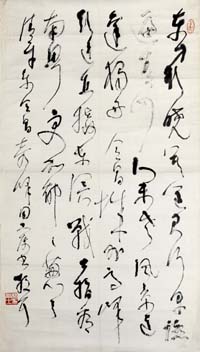 東方欲曉莫道君行早踏
遍青山人未老風景這
邊獨好會昌城外高峰
顛連直接東溟戰士指看
南粵更加郁郁葱葱
清平樂會昌